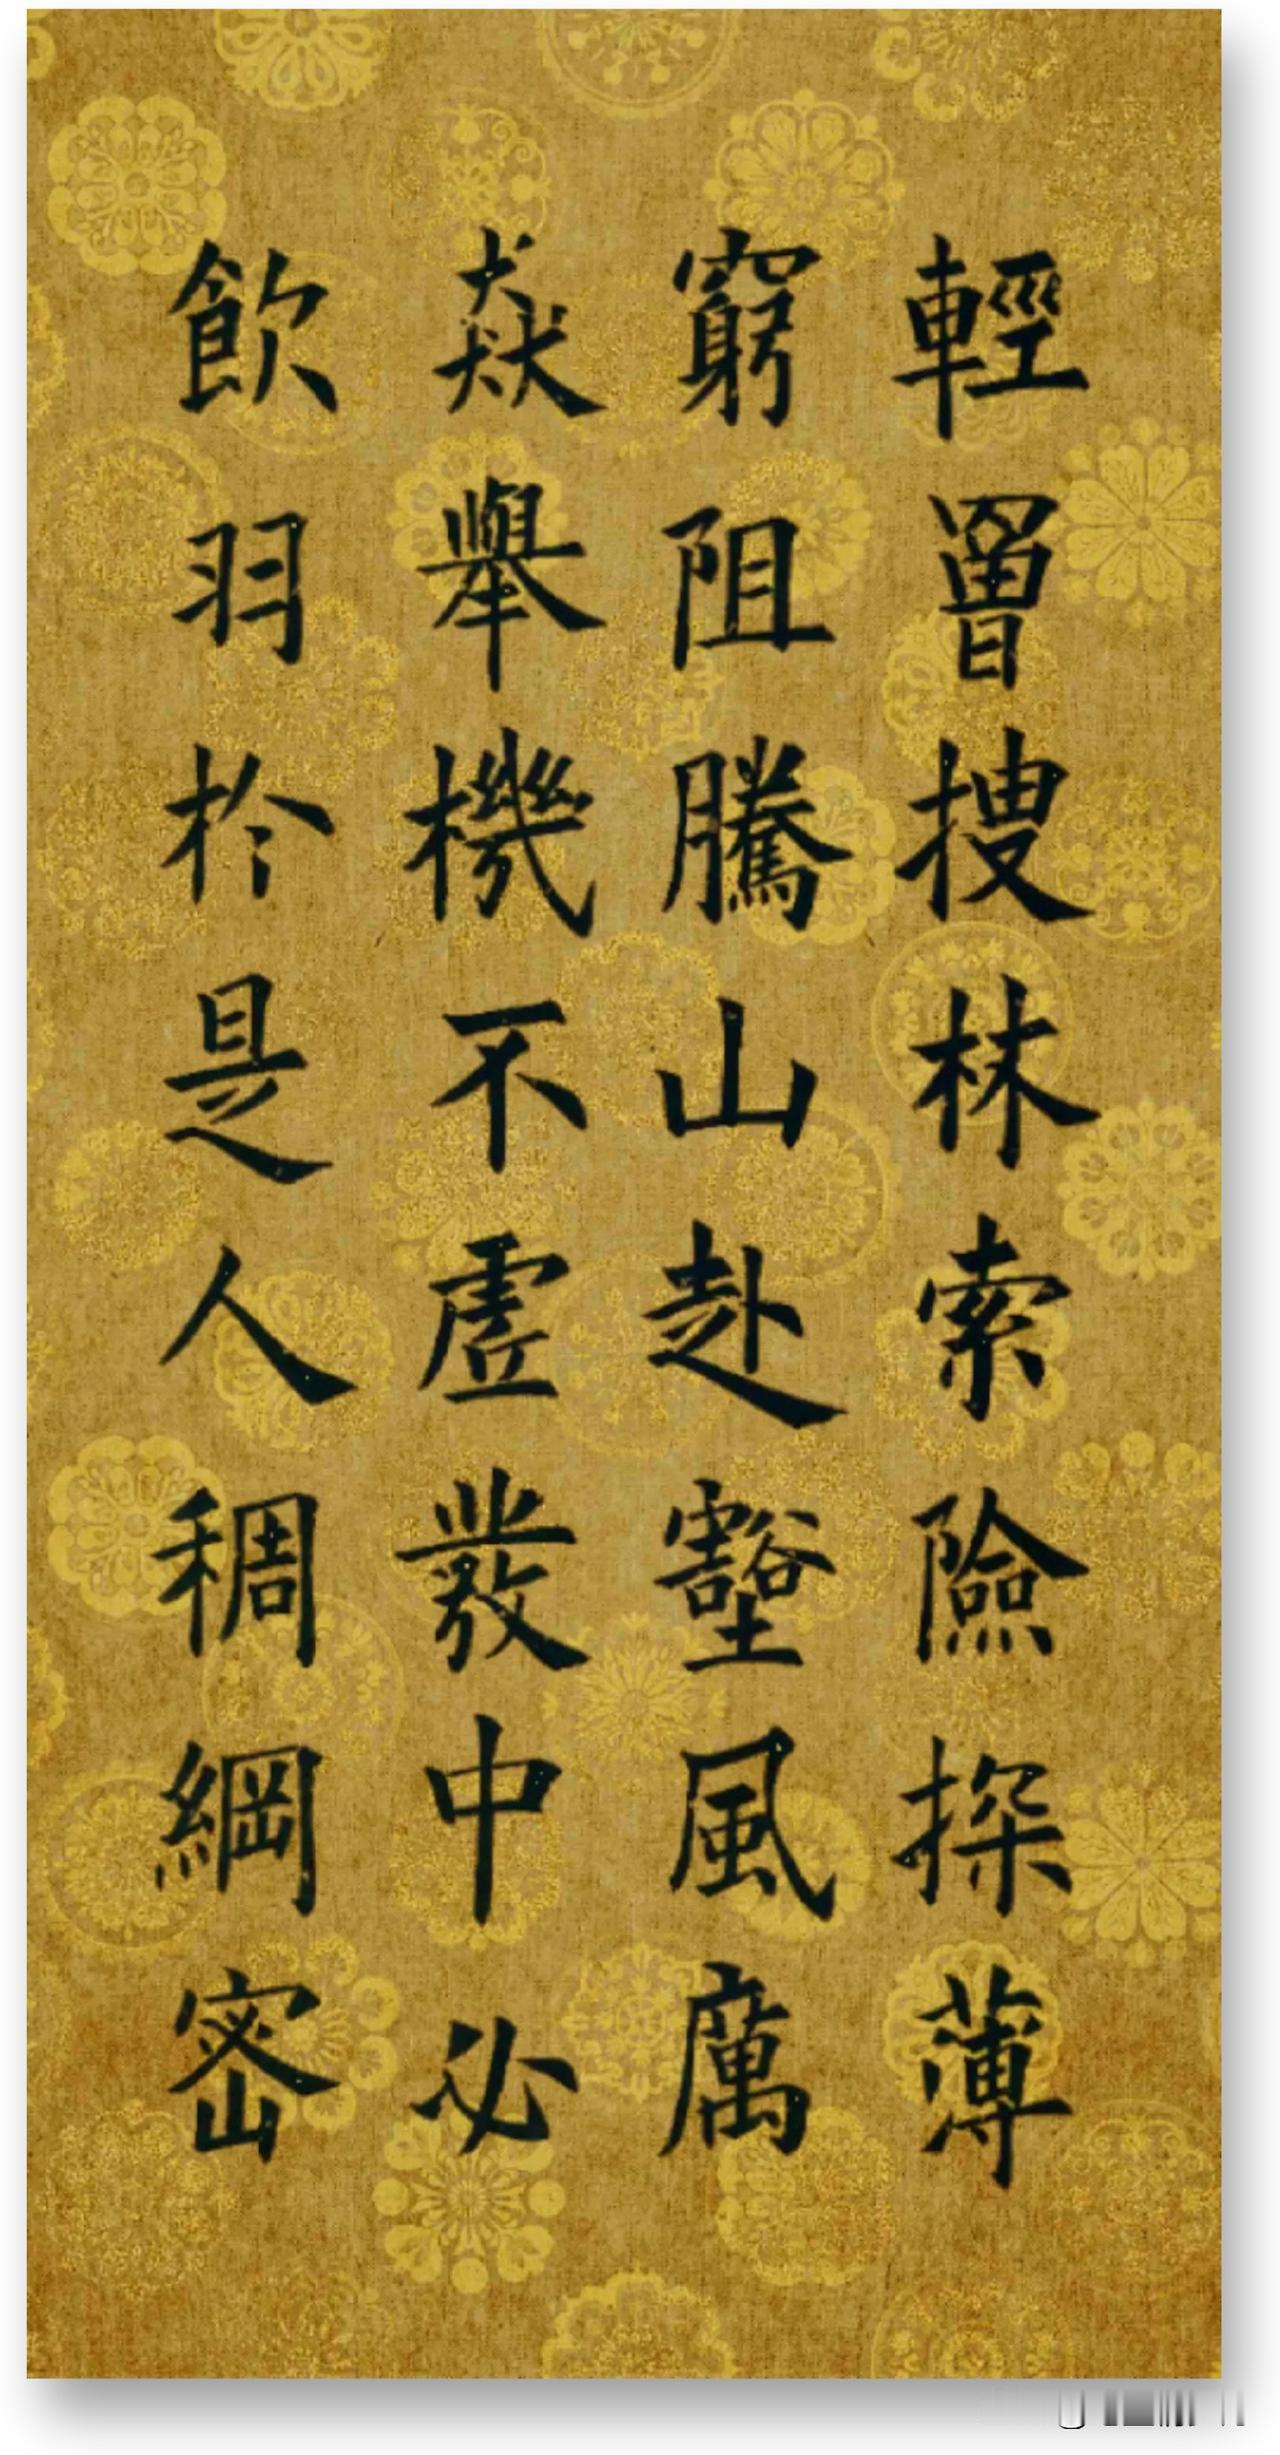 輕罾搜林索險探薄
窮阻騰山赴壑風厲
猋舉機不虛發中必
飲羽於是人稠網密